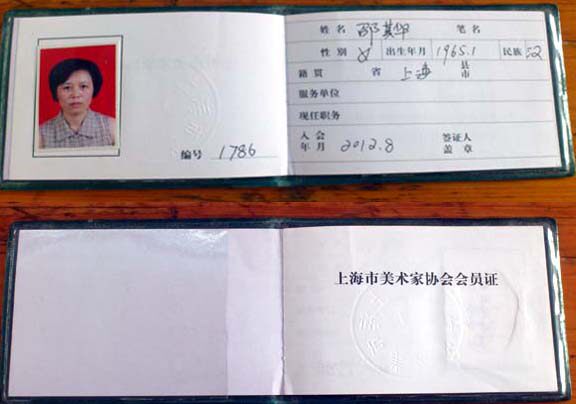 姓名 邵其华 笔名
性别 女 出生年月 1965.1 民族 汉
籍贯 省 上海 县市
服务单位
现任职务
入会年月 2012.8 签证人盖章
编号 1786
上海市美术家协会会员证